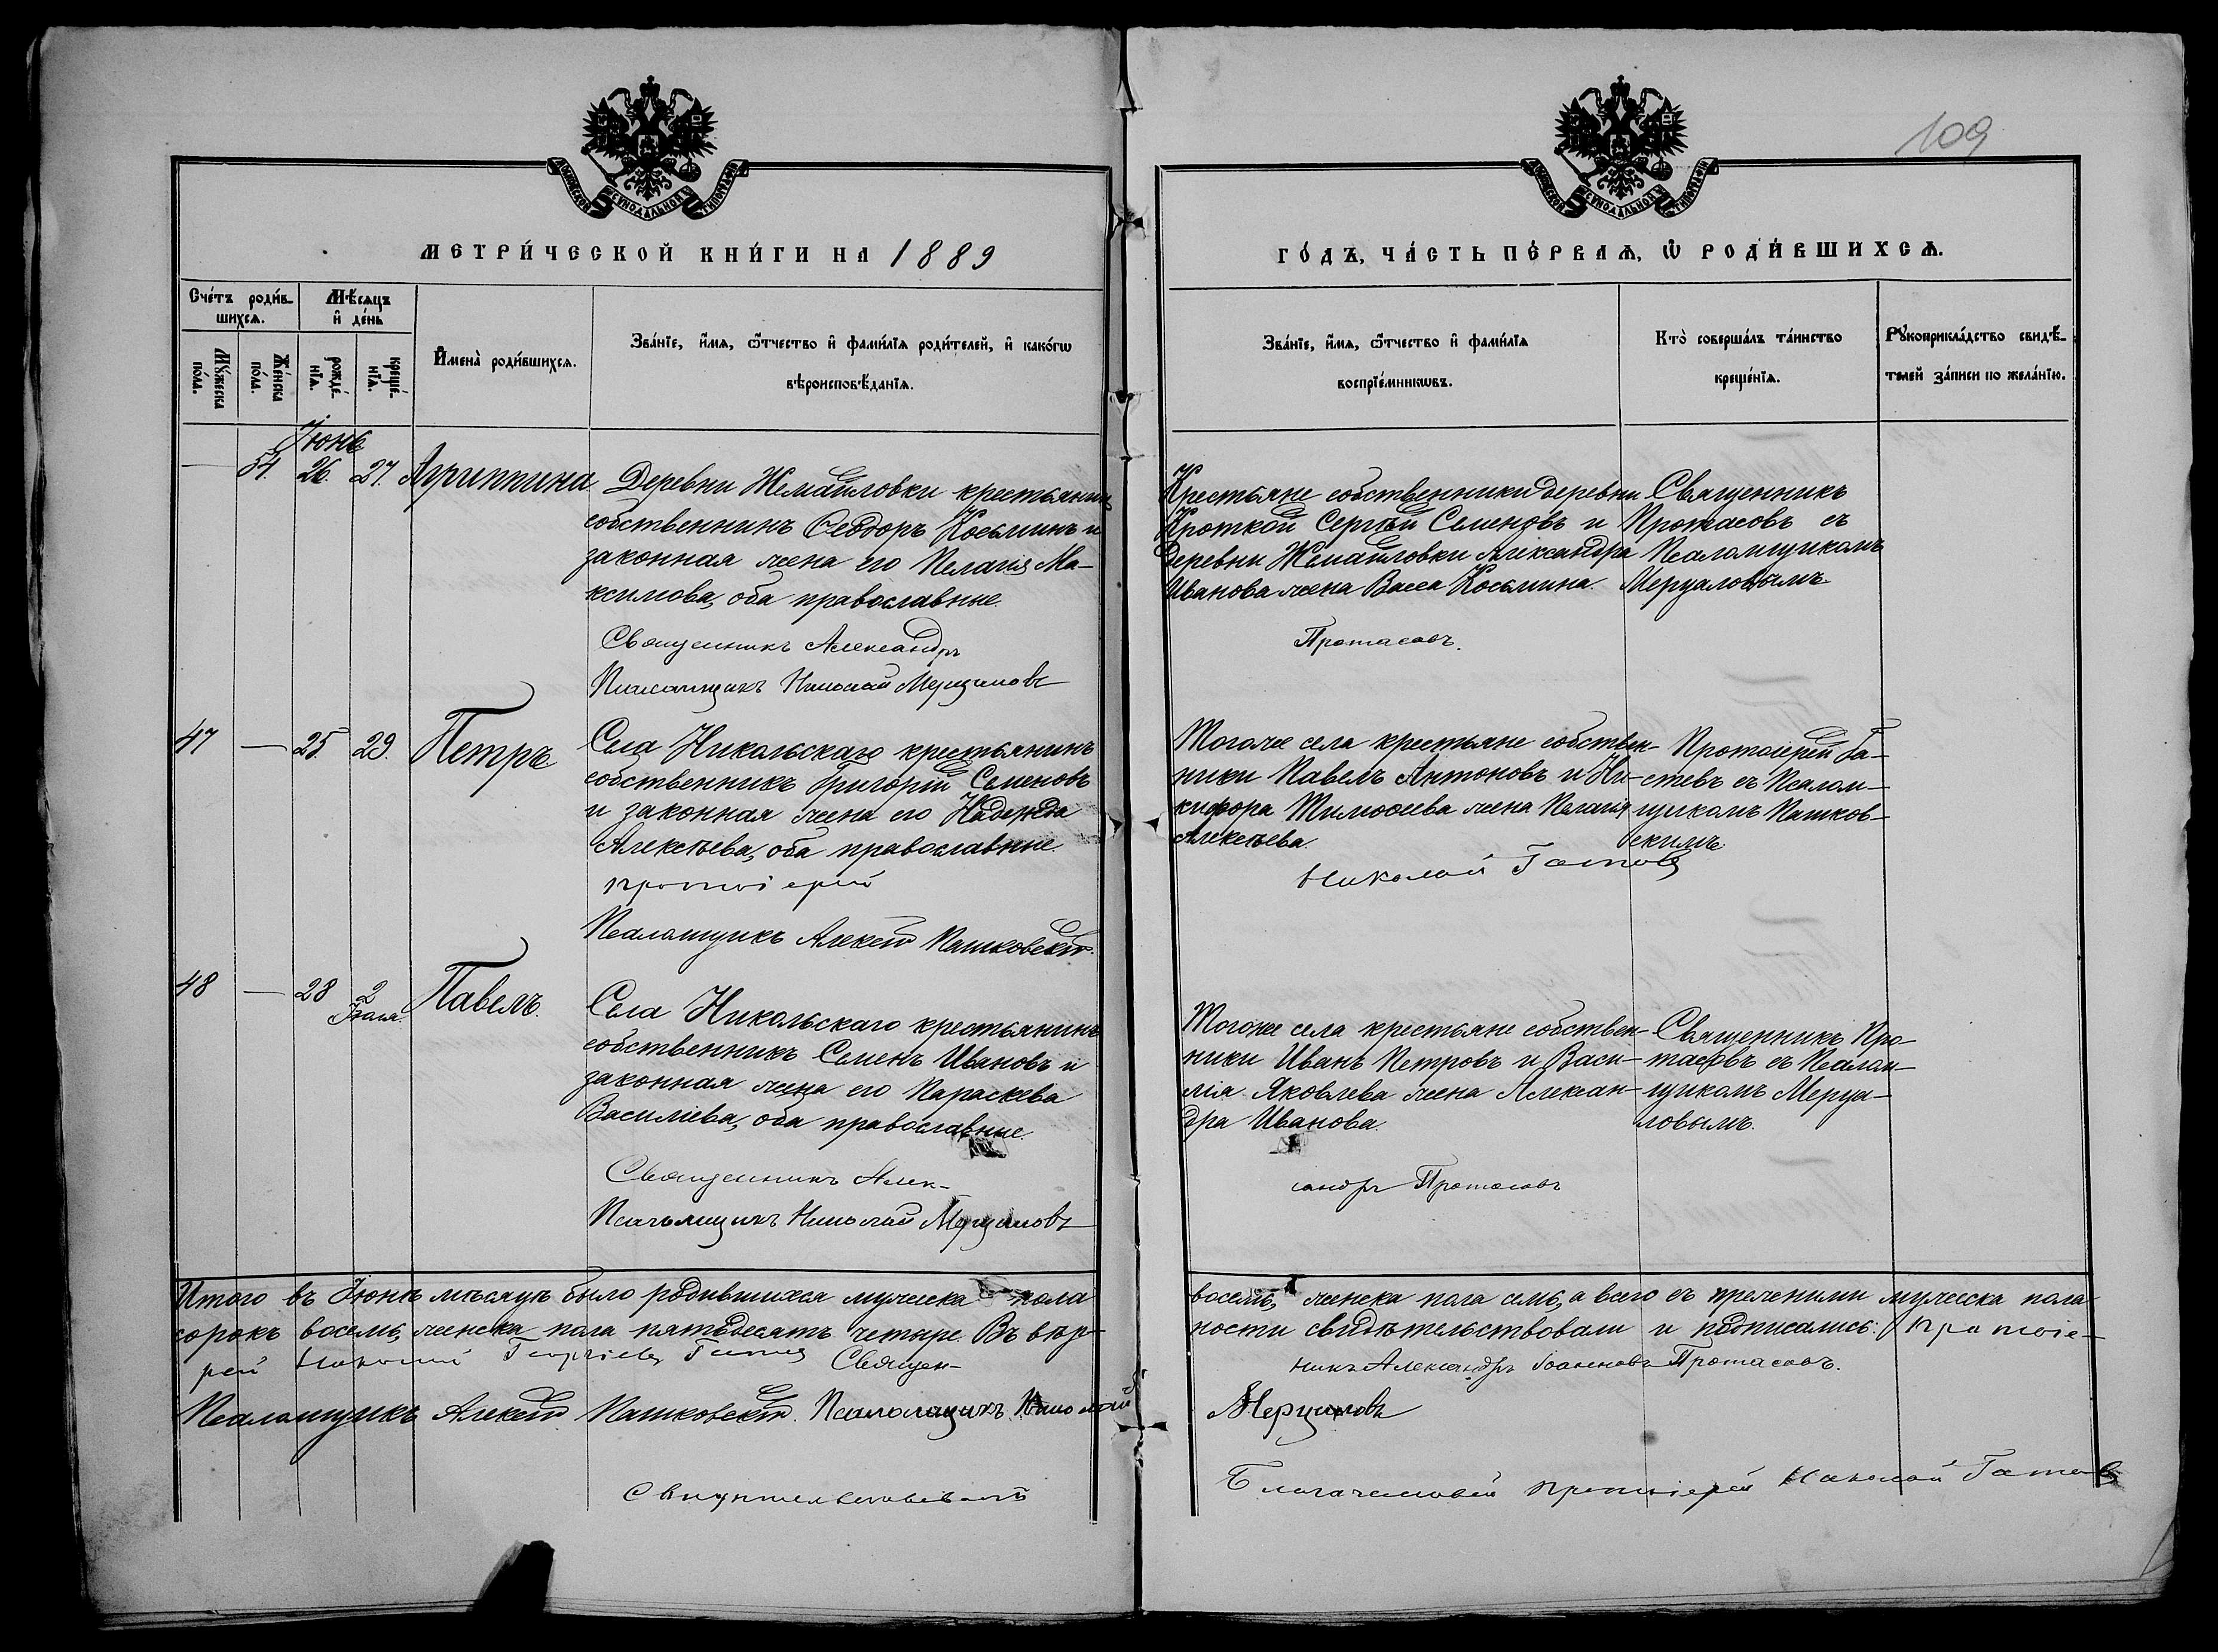 109
МОСКОВСКОЙ СѴНОДАЛЬНОЙ ТИПОГРАФІИ
МОСКОВСКОЙ СѴНОДАЛЬНОЙ ТИПОГРАФІИ
МЕТРИ́ЧЕСКОЙ КНИ́ГИ НА 1889
ГО́ДЪ, ЧА́СТЬ ПЕ́РВАѦ, Ѡ РОДИ́ВШИХСѦ.
Сче́тъ роди́в-
шихсѧ.
Мꙋ́жеска
по́ла.
Же́нска
по́ла.
Мѣ́сѧцъ
и҆ де́нь
рожде́-
нїѧ.
креще́-
нїѧ.
И҆мена̀ роди́вшихсѧ.
Зва́нїе, и҆́мѧ, ѻ҆́тчество и҆ фами́лїѧ роди́телей, и҆ како́гѡ
вѣроисповѣ́данїѧ.
Зва́нїе, и҆́мѧ, ѻ҆́тчество и҆ фами́лїѧ
воспрїе́мникѡвъ.
Кто̀ соверша́лъ та́инство
креще́нїѧ.
Рꙋкоприкла́дство свидѣ́-
телей за́писи по жела́нїю.
Іюнь
— 54. 26. 27. Агриппина
Деревни Жемайловки крестьянин
собственникъ Ѳеодоръ Косьминъ и
законная жена его Пелагія Ма-
ксимова, оба православные.
Священникъ Александръ
Псаломщикъ Николай Мерцаловъ
Крестьяне собственники деревни
Кроткой Сергѣй Семеновъ и
деревни Жемайловки Александра
Иванова жена Васса Косьмина.
Протасовъ.
Священникъ
Протасовъ съ
Псаломщикомъ
Мерцаловымъ.
47 — 25. 29. Петръ
Села Никольскаго крестьянинъ
собственникъ Григорій Семеновъ
и законная жена его Надежда
Алексѣева, оба православные.
протоіерей
Псаломщикъ Алексѣй Пашковскій.
Тогоже села крестьяне собствен-
ники Павелъ Антоновъ и Ни-
кифора Тимофеева жена Пелагія
Алексѣева.
Николай Гастевъ
Протоіерей Га-
стевъ съ Псалом-
щикомъ Пашков-
скимъ
48 — 28 2 Іюля. Павелъ.
Села Никольскаго крестьянинъ
собственникъ Семенъ Ивановъ и
законная жена его Параскева
Василіева, оба православные.
Священникъ Алек-
Псаломщикъ Николай Мерцаловъ
Тогоже села крестьяне собствен-
ники Иванъ Петровъ и Васи-
лія Яковлева жена Алексан-
дра Иванова.
сандръ Протасовъ
Священникъ Про-
тасовъ съ Псалом-
щикомъ Мерца-
ловымъ.
Итого въ Іюнѣ мѣсяцѣ было родившихся мужеска пола
восемь, женска пола семь, а всего съ прежними мужеска пола
сорокъ восемь, женска пола пятьдесятъ четыре. Въ вѣр-
ности свидѣтельствовали и подписались: Протоіе-
рей Николай Георгіевъ Гастевъ Священ-
никъ Александръ Іоанновъ Протасовъ.
Псаломщикъ Алексѣй Пашковскій. Псаломщикъ Николай
Мерцаловъ
Свидѣтельствовалъ
Благочинный протоіерей Николай Гастевъ